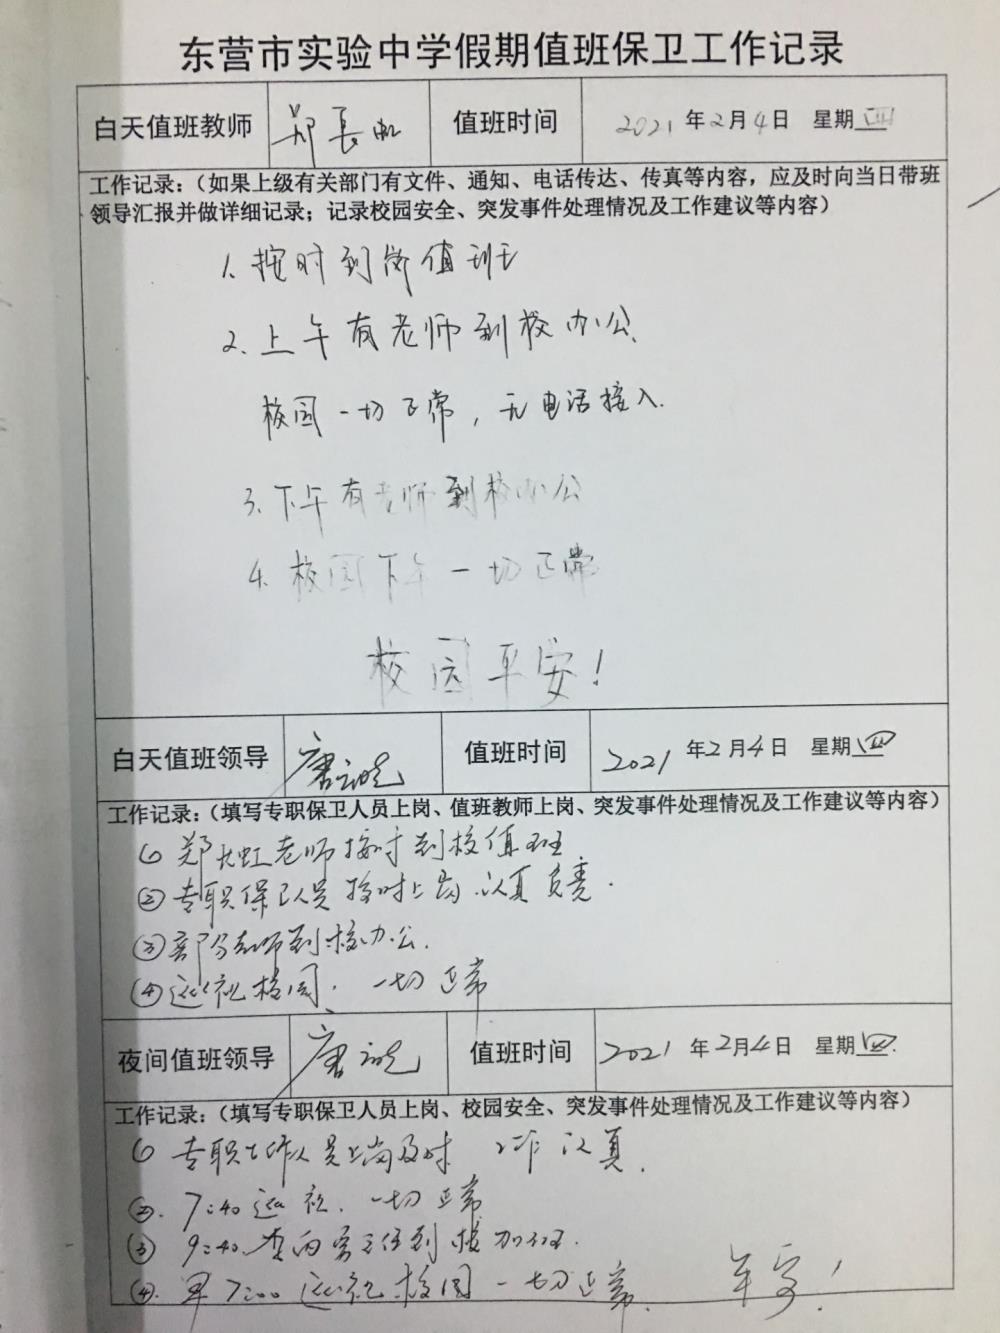 东营市实验中学假期值班保卫工作记录
白天值班教师 郑長虹 值班时间 2021年2月4日 星期四
工作记录：（如果上级有关部门有文件、通知、电话传达、传真等内容，应及时向当日带班
领导汇报并做详细记录；记录校园安全、突发事件处理情况及工作建议等内容）
1. 按时到岗值班
2. 上午有老师到校办公.
校园一切正常，无电话接入.
3. 下午有老师到校办公
4. 校园下午一切正常
校园平安！
白天值班领导 唐 值班时间 2021年2月4日 星期四
工作记录：（填写专职保卫人员上岗、值班教师上岗、突发事件处理情况及工作建议等内容）
① 郑长虹老师按时到校值班
② 专职保卫人员按时上岗 认真负责.
③ 部分老师到校办公.
④ 巡视校园. 一切正常
夜间值班领导 唐 值班时间 2021年2月4日 星期四.
工作记录：（填写专职保卫人员上岗、校园安全、突发事件处理情况及工作建议等内容）
① 专职工作人员上岗及时 工作认真.
②. 7:40巡视. 一切正常
③ 9:40. 到校加班.
④. 早7:00 巡视校园一切正常. 平安！